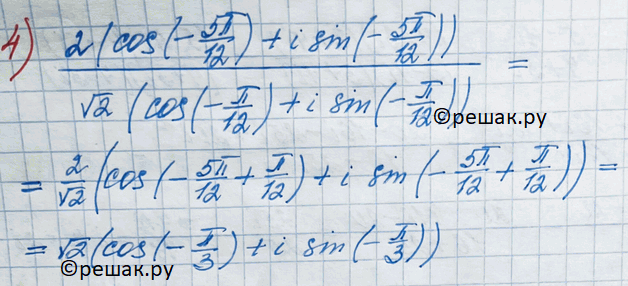 4) 2(cos(-5π/12) + i sin(-5π/12)) / √2 (cos(-π/12) + i sin(-π/12)) =
©решак.ру
= 2/√2 (cos(-5π/12 + π/12) + i sin(-5π/12 + π/12)) =
= √2(cos(-π/3) + i sin(-π/3))
©решак.ру